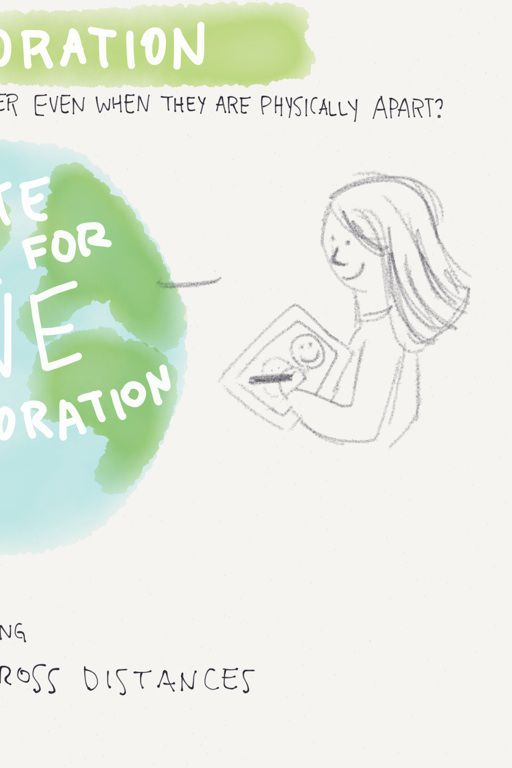 ORATION
ER EVEN WHEN THEY ARE PHYSICALLY APART?
TE
FOR
NE
ORATION
NG
ROSS DISTANCES